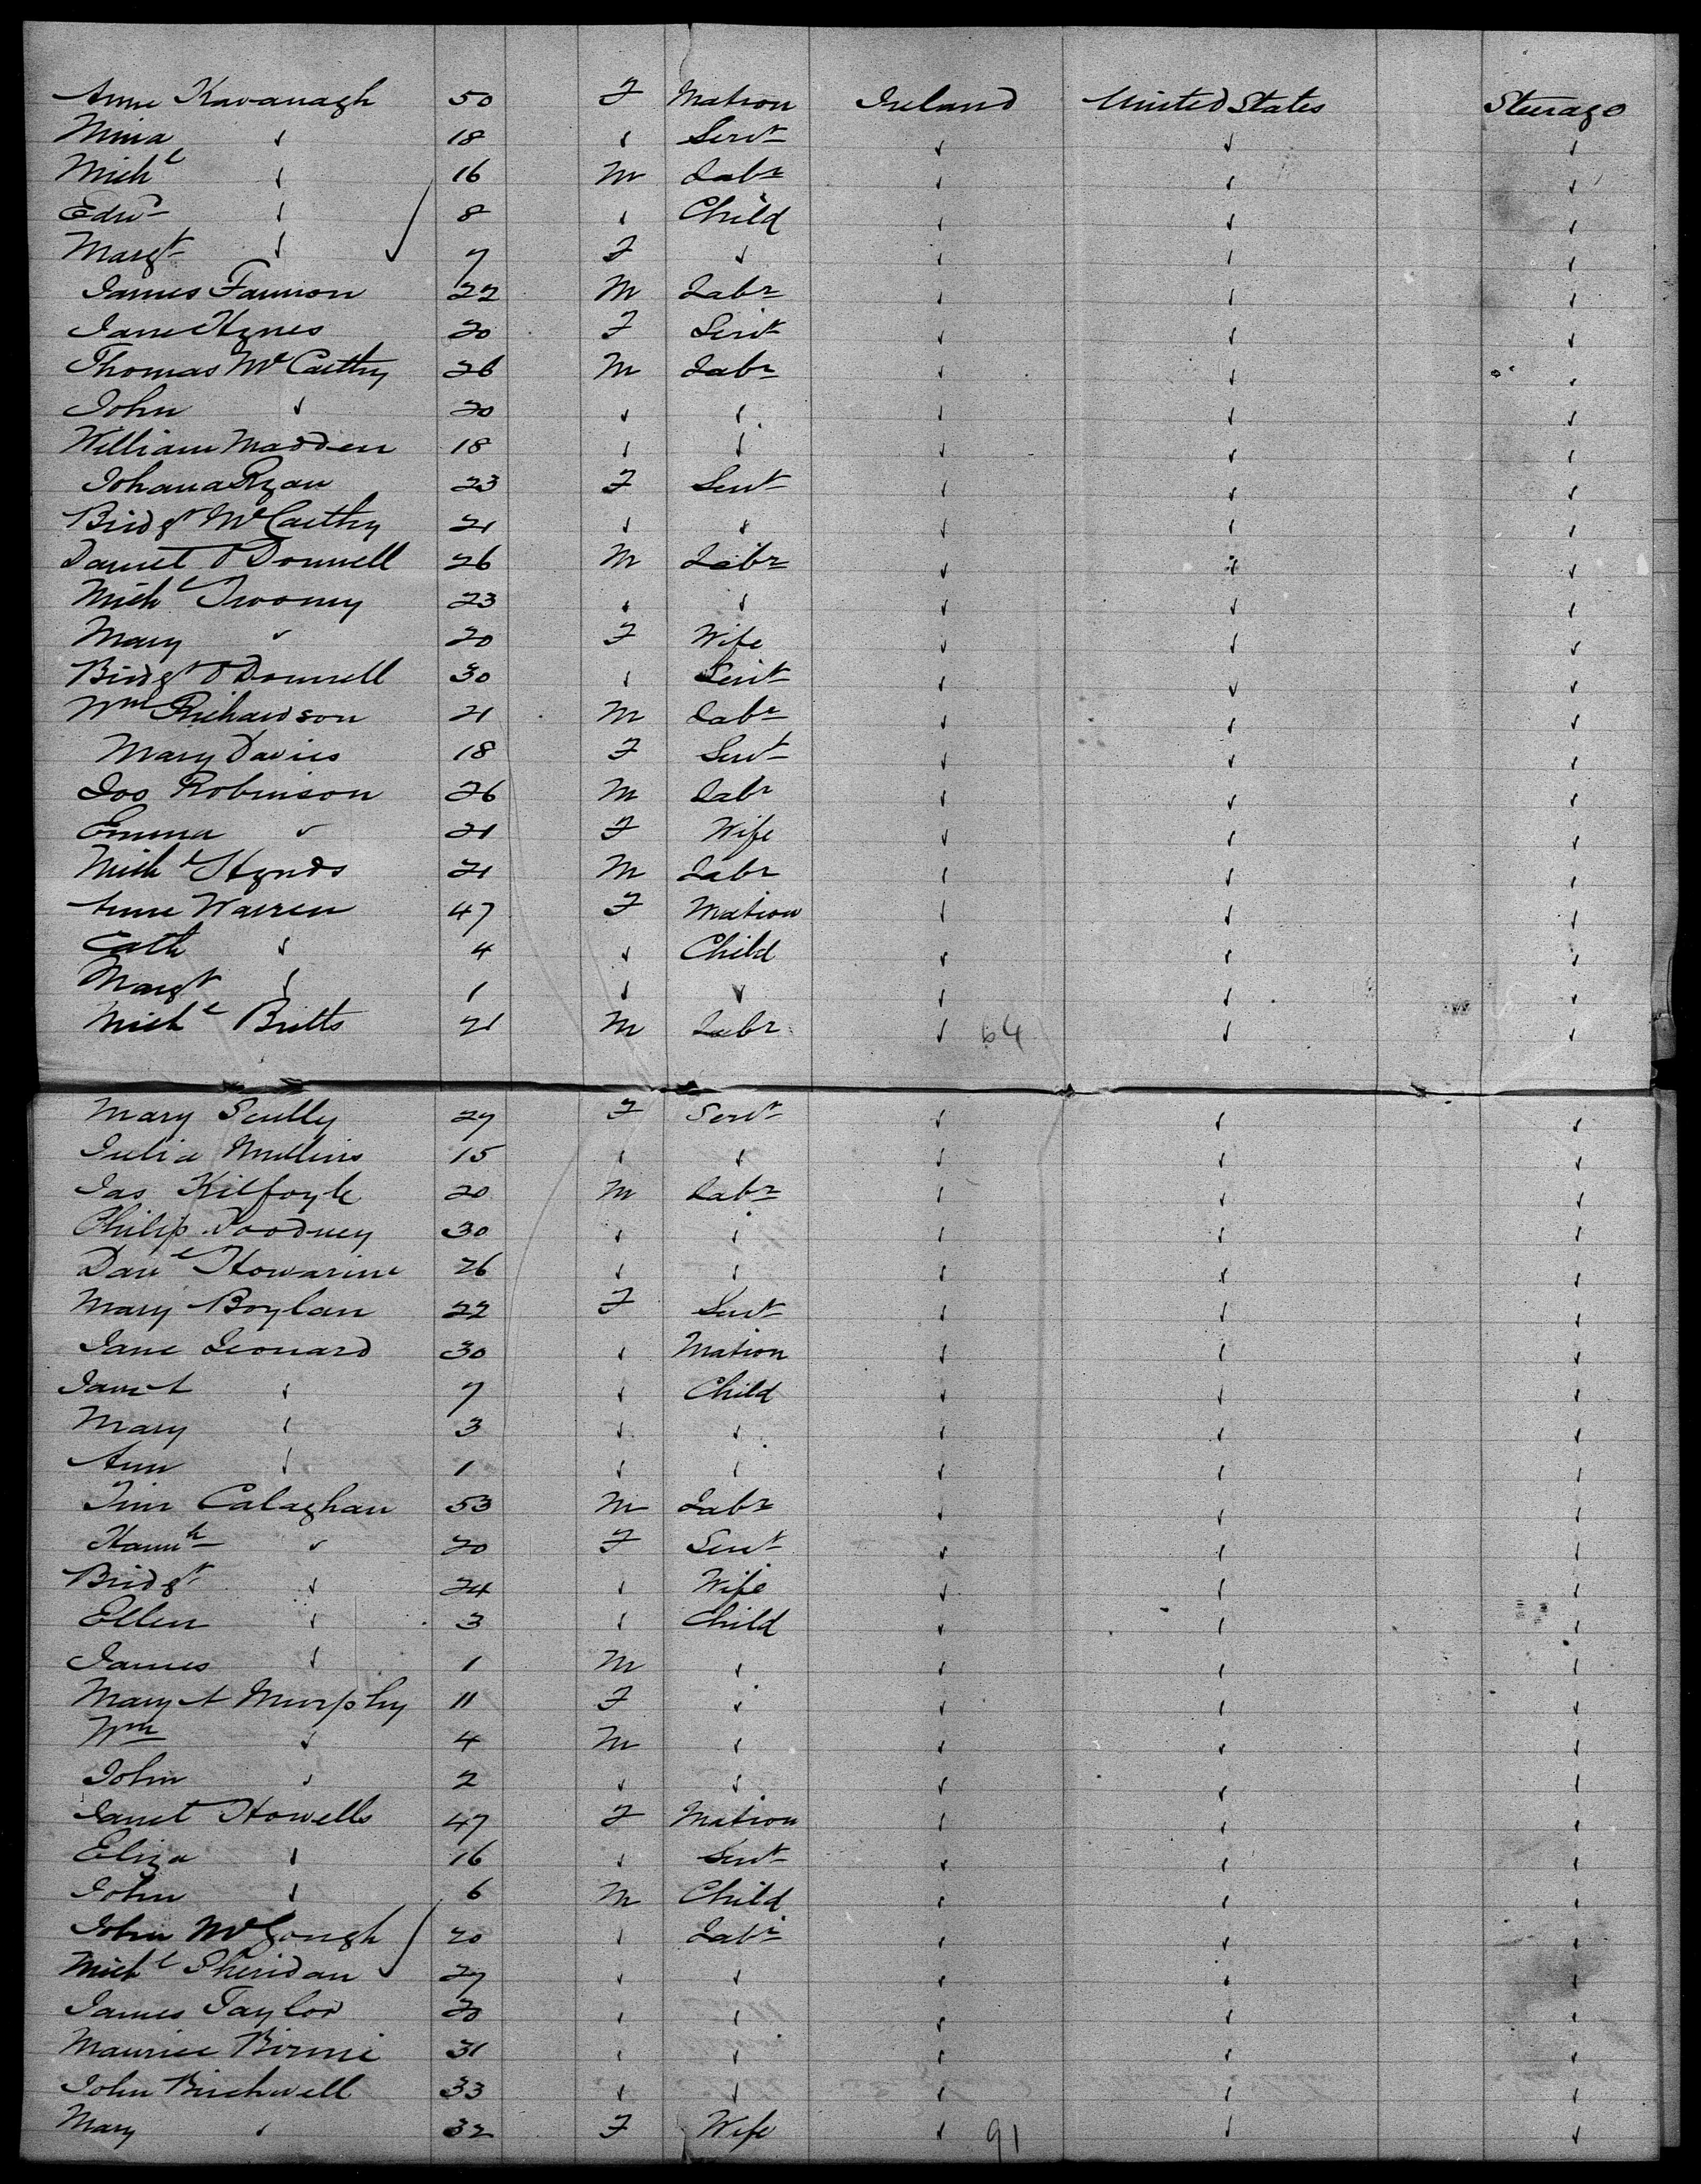 Anne Kavanagh 50 F Matron Ireland United States Steerage
Mina " 18 " Servt " " "
Michl " 16 M Labr " " "
Edwd " 8 " Child " " "
Margt " 7 F " " " "
James Fannon 22 M Labr " " "
Jane Hynes 20 F Servt " " "
Thomas McCarthy 26 M Labr " " "
John " 20 " " " " "
William Madden 18 " " " " "
Johana Ryan 23 F Servt " " "
Bridgt McCarthy 21 " " " " "
Daniel O'Donnell 26 M Labr " " "
Michl Twomy 23 " " " " "
Mary " 20 F Wife " " "
Bridgt O'Donnell 30 " Servt " " "
Wm Richardson 21 M Labr " " "
Mary Davies 18 F Servt " " "
Jos Robinson 26 M Labr " " "
Emma " 21 F Wife " " "
Michl Hynds 21 M Labr " " "
Anne Warren 47 F Matron " " "
Cath " 4 " Child " " "
Margt " 1 " " " " "
Michl Butts 21 M Labr " 64 " "
Mary Scully 27 F Servt " " "
Julia Mullins 15 " " " " "
Jas Kilfoyle 20 M Labr " " "
Philip 30 " " " " "
Danl 26 " " " " "
Mary Boylan 22 F Servt " " "
Jane Leonard 30 " Matron " " "
Janet " 7 " Child " " "
Mary " 3 " " " " "
Ann " 1 " " " " "
Tim Calaghan 53 M Labr " " "
Hannh " 20 F Servt " " "
Bridgt " 24 " Wife " " "
Ellen " 3 " Child " " "
James " 1 M " " " "
Mary A Murphy 11 F " " " "
Wm " 4 M " " " "
John " 2 " " " " "
Janet Howells 47 F Matron " " "
Eliza " 16 " Servt " " "
John " 6 M Child " " "
John McGough 20 " Labr " " "
Michl Sheridan 27 " " " " "
James Taylor 20 " " " " "
Maurice Birmi 31 " " " " "
John Birchwell 33 " " " " "
Mary " 32 F Wife " 91 " "